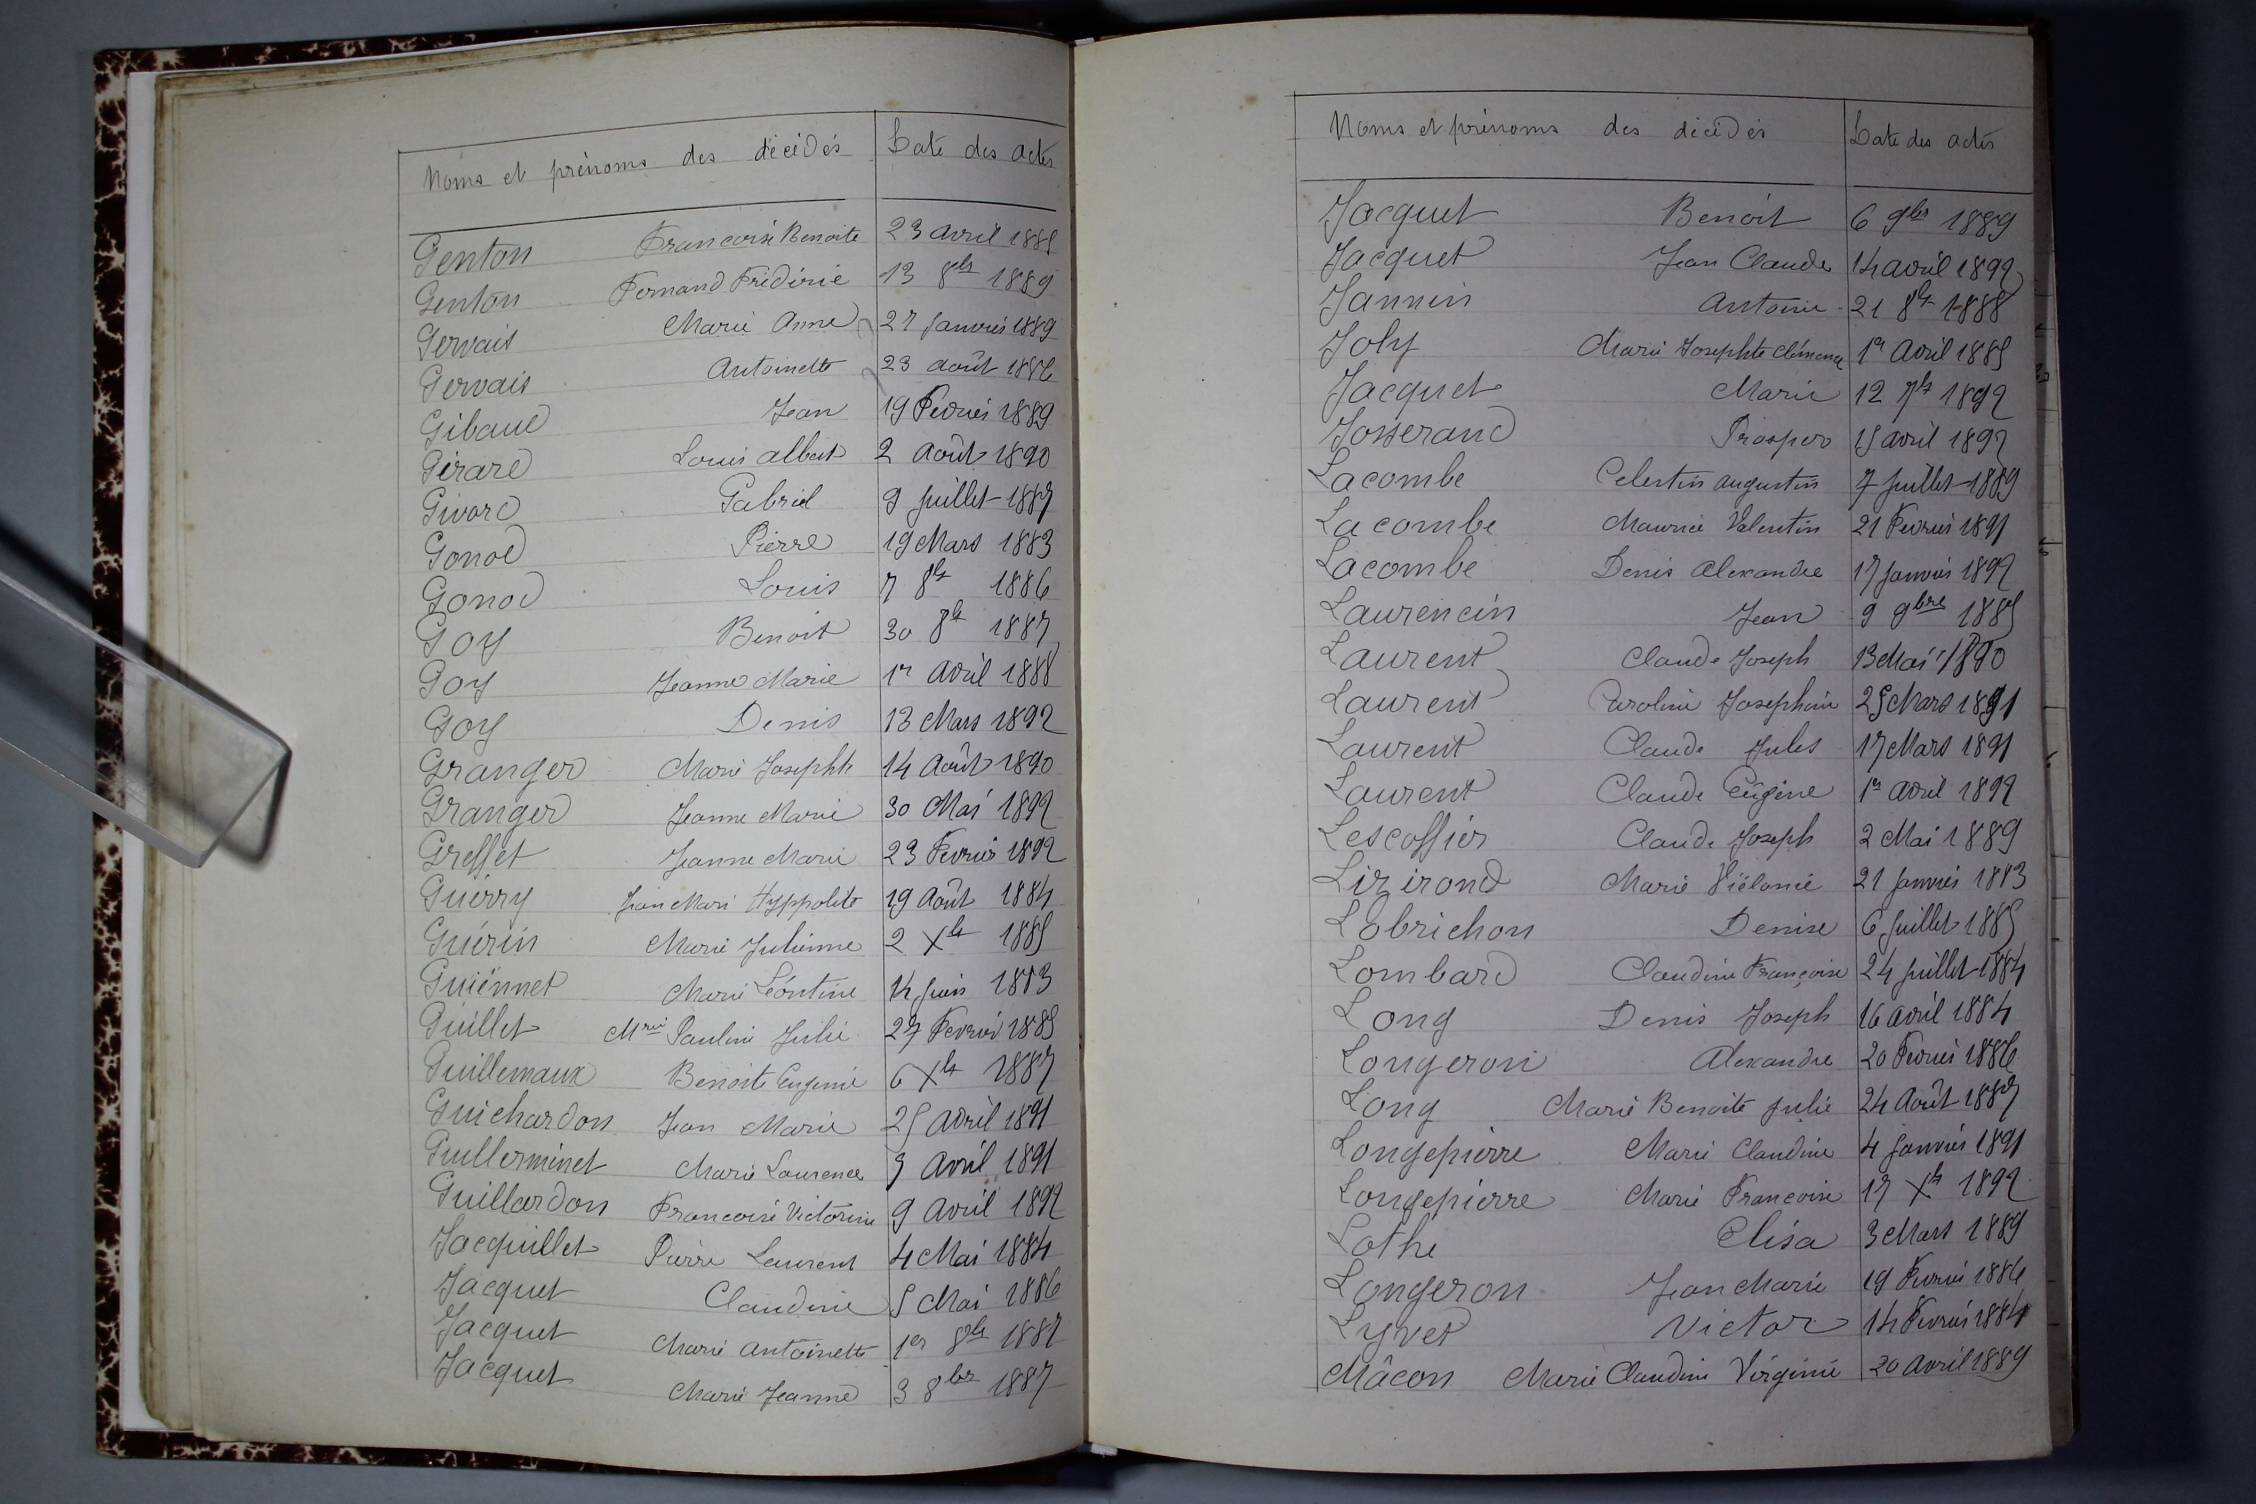 Noms et prénoms des décédés Date des actes
Genton Françoise Benoite 23 avril 1885
Genton Fernand Frédéric 13 8bre 1889
Gervais Marie Anne 27 Janvier 1889
Gervais Antoinette 23 août 1886
Gibaud Jean 19 Février 1889
Girard Louis albert 2 Août 1890
Givord Gabriel 9 Juillet 1887
Gonod Pierre 19 Mars 1883
Gonod Louis 7 8bre 1886
Goy Benoit 30 8bre 1887
Goy Jeanne Marie 1er Avril 1888
Goy Denis 13 Mars 1892
Granger Marie Josephte 14 Août 1890
Granger Jeanne Marie 30 Mai 1892
Greffet Jeanne Marie 23 Fevrier 1892
Guérry Jean Marie Hyppolite 19 Août 1884
Guérin Marie Julienne 2 Xbre 1885
Guiennet Marie Léontine 14 Juin 1883
Guillet Mrie Pauline Julie 27 Fevrier 1885
Guillemaux Benoite Eugenie 6 Xbre 1887
Guichardon Jean Marie 25 Avril 1891
Guillerminet Marie Laurence Avril 1891
Guillardon Francoise Victorine 9 Avril 1892
Jacquillet Pierre Laurent 4 Mai 1884
Jacquet Claudine 5 Mai 1886
Jacquet Marie Antoinette 1er 8bre 1887
Jacquet Marie Jeanne 3 8bre 1887
Noms et prénoms des décédés Date des actes
Jacquet Benoit 6 9bre 1889
Jacquet Jean Claude 14 avril 1892
Jannin Antoine 21 8bre 1888
Joly Marie Josephte Clémence 1er Avril 1885
Jacquet Marie 12 7bre 1892
Josserand Prosper 15 avril 1892
Lacombe Celestin augustin 7 Juillet 1889
Lacombe Maurice Valentin 21 Fevrier 1891
Lacombe Denis Alexandre 17 Janvier 1892
Laurencin Jean 9 9bre 1885
Laurent Claude Joseph 13 Mai 1890
Laurent Caroline Josephine 25 Mars 1891
Laurent Claude Jules 17 Mars 1891
Laurent Claude Eugène 1er avril 1892
Lescoffier Claude Joseph 2 Mai 1889
Lizirond Marie 21 Janvier 1883
Lobrichon Denise 6 Juillet 1885
Lombard Claudine Françoise 24 Juillet 1884
Long Denis Joseph 16 avril 1884
Longeron Alexandre 20 Fevrier 1886
Long Marie Benoite Julie 24 Août 1887
Longepierre Marie Claudine 4 Janvier 1891
Longepierre Marie Francoise 17 Xbre 1892
Lothe Elisa 3 Mars 1889
Longeron Jean Marie 19 Fevrier 1886
Lyvet Victor 14 Fevrier 1884
Mâcon Marie Claudine Virginie 20 Avril 1889